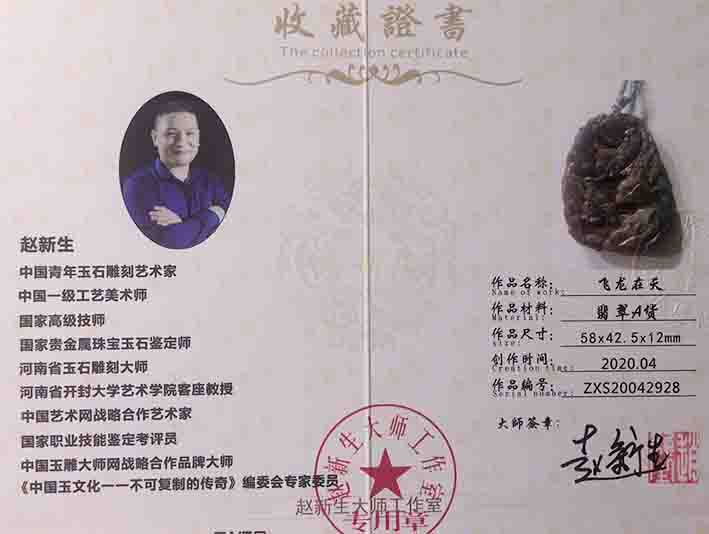 收藏證書
The collection certificate
赵新生
中国青年玉石雕刻艺术家
中国一级工艺美术师
国家高级技师
国家贵金属珠宝玉石鉴定师
河南省玉石雕刻大师
河南省开封大学艺术学院客座教授
中国艺术网战略合作艺术家
国家职业技能鉴定考评员
中国玉雕大师网战略合作品牌大师
《中国玉文化一一不可复制的传奇》编委会专家委员
赵新生大师工作室
赵新生大师工作室
专用章
作品名称: 飞龙在天
Name of work:
作品材料: 翡翠A货
作品尺寸: 58x42.5x12mm
size:
创作时间: 2020.04
Creation time:
作品编号: ZXS20042928
Serial number:
大师签章:
赵新生